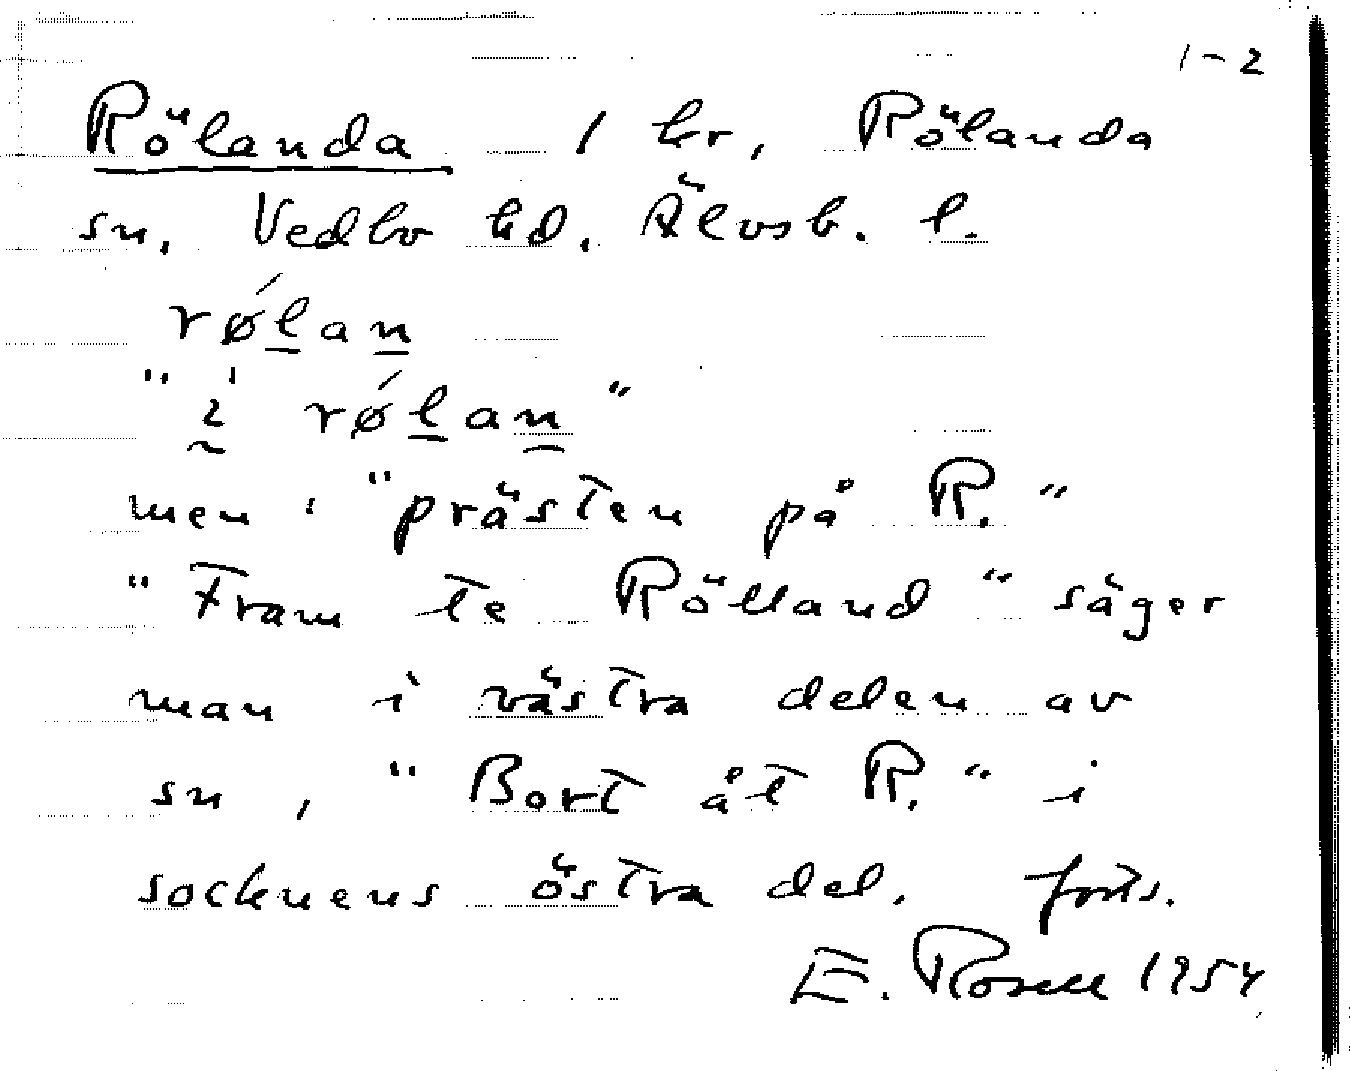 1-2
Rölanda 1 hr, Rölanda
sn, Vedbo hd. Älvsb. l.
røʹlan
"i røʹlan"
men: "prästen på R."
"Fram te Rölland" säger
man i västra delen av
sn, "Bort åt R." i
socknens östra del. forts.
E. Rosell 1954